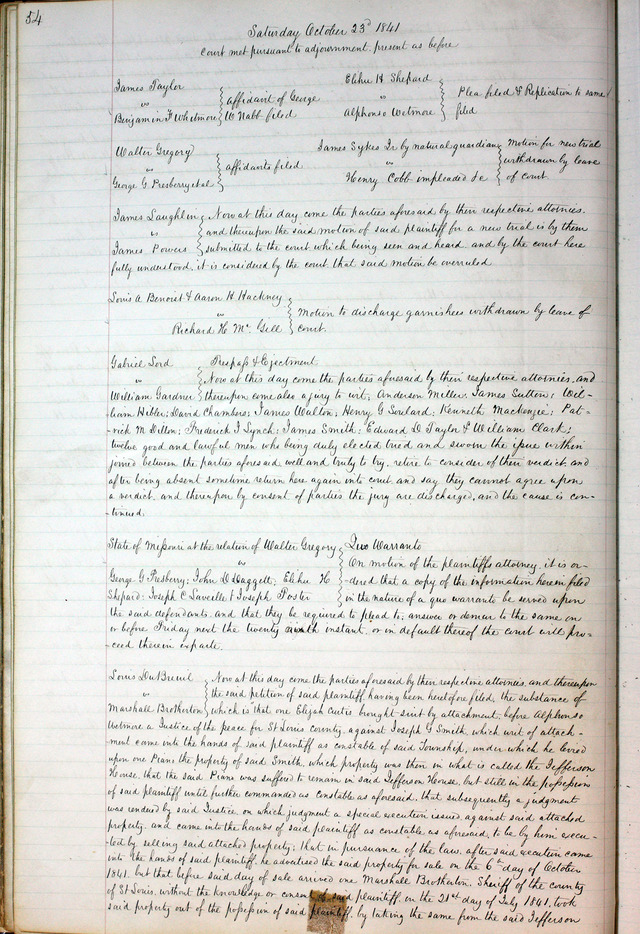 54
Saturday October 23d 1841
Court met pursuant to adjournment, present as before
James Taylor
vs
Benjamin F Whitmore
affidavit of George
W Nabb filed
Elihu H Shepard
"
Alphonso Wetmore
Plea filed & Replication to same
filed
Walter Gregory
vs
George G Presberry et al
affidavits filed
James Sykes Jr by natural guardian
vs
Henry Cobb impleaded &c
Motion for new trial
withdrawn by leave
of court
James Laughlin
vs
James Powers
Now at this day come the parties aforesaid by their respective attornies,
and thereupon the said motion of said plaintiff for a new trial is by them
submitted to the court which being seen and heard and by the court here
fully understood, it is considered by the court that said motion be overruled
Louis A Benoist & Aaron H Hackney
vs
Richard H Mc Gill
Motion to discharge garnishees withdrawn by leave of
court.
Gabriel Lord
vs
William Gardner
Trespass & Ejectment
Now at this day come the parties aforesaid by their respective attornies, and
thereupon come also a jury to wit, Anderson Miller; James Sutton; Wil-
liam Hibler; David Chambers; James Walton; Henry G Soulard; Kenneth Mackenzie; Pat-
rick M Dillon; Frederick J Lynch; James Smith; Edward D Taylor & William Clark;
twelve good and lawful men who being duly elected tried and sworn the issue within
joined between the parties aforesaid well and truly to try, retire to consider of their verdict, and
after being absent sometime return here again into court and say they cannot agree upon
a verdict, and thereupon by consent of parties the jury are discharged, and the cause is con-
tinued.
State of Missouri at the relation of Walter Gregory
vs
George G Presberry; John D Daggett; Elihu H
Shepard; Joseph C Laveille & Joseph Foster
Quo Warranto
On motion of the plaintiffs attorney, it is or-
dered that a copy of the information herein filed
in the nature of a quo warranto be served upon
the said defendants, and that they be required to plead to, answer or demur to the same on
or before Friday next the twenty ninth instant, or in default thereof the court will pro-
ceed therein exparte.
Louis DuBreuil
vs
Marshall Brotherton
Now at this day come the parties aforesaid by their respective attornies, and thereupon
the said petition of said plaintiff having been heretofore filed, the substance of
which is that one Elijah Curtis brought suit by attachment, before Alphonso
Wetmore a Justice of the peace for St Louis County, against Joseph G Smith, which writ of attach-
ment came into the hands of said plaintiff as constable of said Township, under which he levied
upon one Piano the property of said Smith, which property was then in what is called the Jefferson
House, that the said Piano was suffered to remain in said Jefferson House, but still in the possession
of said plaintiff until further commanded as constable as aforesaid, that subsequently a judgment
was rendered by said Justice on which judgment a special execution issued, against said attached
property, and came into the hands of said plaintiff as constable as aforesaid, to be by him execu-
ted by selling said attached property; that in pursuance of the law, after said execution came
into the hands of said plaintiff, he advertised the said property for sale on the 6th day of October
1841, but that before said day of sale arrived one Marshall Brotherton, Sheriff of the county
of St Louis, without the knowledge or consent of said plaintiff, on the 21st day of July 1841, took
said property out of the possession of said plaintiff, by taking the same from the said Jefferson